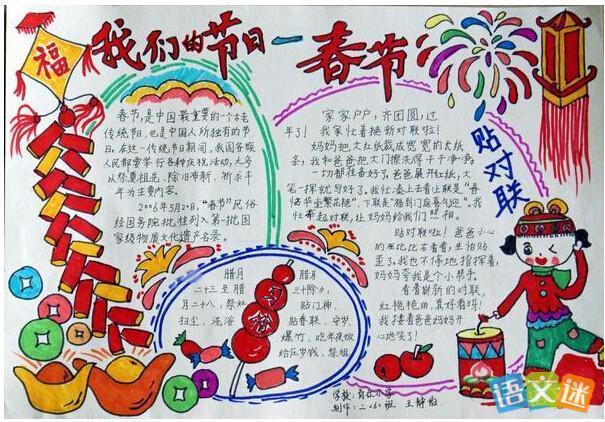 我们的节日—春节
福
春节,是中国最重要的一个古老
传统节,也是中国人所独有的节
日。在这一传统节日期间,我国各族
人民都要举行各种庆祝活动,大多
以祭奠祖先、除旧布新、祈求丰
年为主要内容。
2006年5月20日,“春节”民俗
经国务院批准列入第一批国
家级物质文化遗产名录。
家家户户,齐团圆,过
年了!我家忙着换新对联啦!
妈妈把大红纸裁成宽宽的长纸
条,我和爸爸把大门擦洗得干干净净,
一切都准备好了。爸爸展开红纸,大
笔一挥就写好了。我忙凑上去看上联是“春
临节至繁花艳”,下联是“福到门庭喜气迎”。我
忙拿起对联,让妈妈给我们照相。
贴对联
贴对联啦!爸爸小心
的在比比右看看,生怕贴
歪了。我也不停地指挥着,
妈妈夸我是个小帮手。
看着崭新的对联,
红艳艳的,真好看吗!
我搂着爸爸妈妈开
心地笑了!
腊月
二十三至腊
月二十八,祭灶
扫尘、洗浴
腊月
三十除夕,
贴门神、
贴春联、守岁、
爆竹、吃年夜饭
给压岁钱、祭祖
学校:
制作:二〈6〉班 王静怡
语文迷